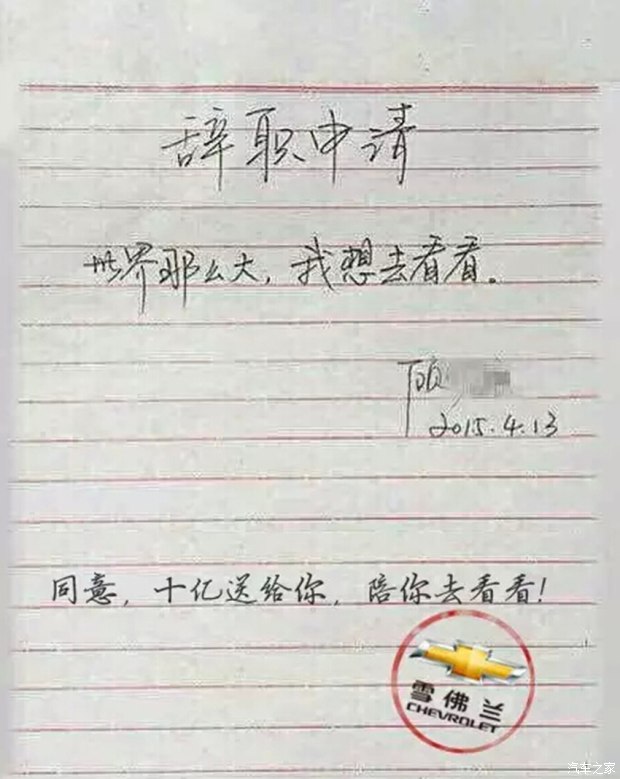 辞职申请
世界那么大，我想去看看。
顾
2015.4.13
同意，十亿送给你，陪你去看看！
雪佛兰
CHEVROLET
汽车之家